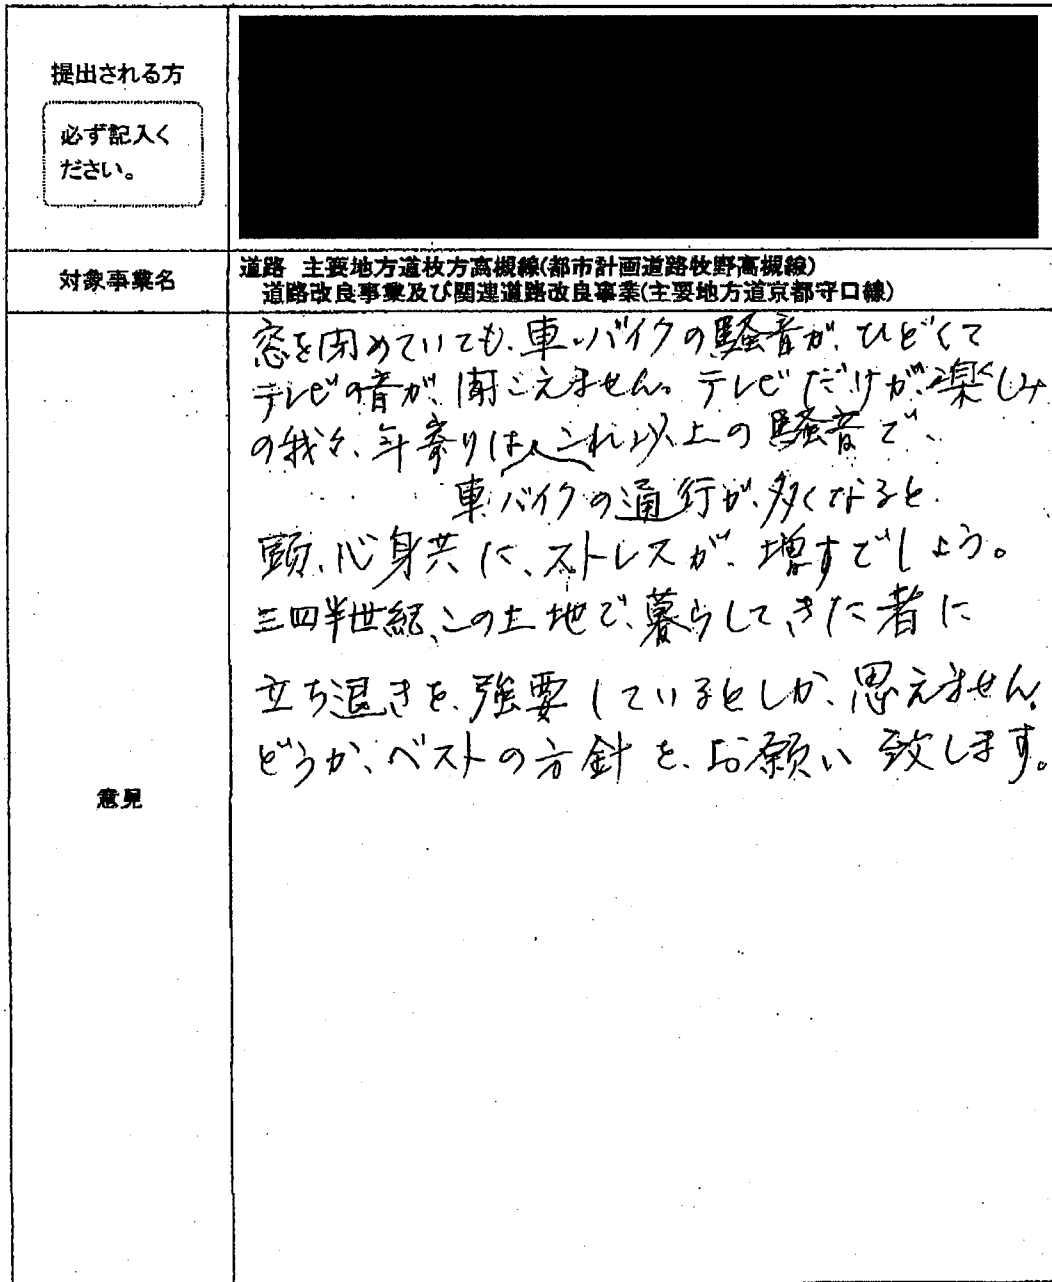 提出される方
必ず記入く
ださい。
対象事業名
道路 主要地方道枚方高槻線(都市計画道路牧野高槻線)
道路改良事業及び関連道路改良事業(主要地方道京都守口線)
意見
窓を閉めていても、車・バイクの騒音が、ひどくて
テレビの音が、聞こえません。テレビだけが、楽しみ
の我々、年寄りは、これ以上の騒音で、
車バイクの通行が、多くなると
頭、心身共に、ストレスが、増すでしょう。
三四半世紀、この土地で、暮らしてきた者に
立ち退きを、強要しているとしか、思えません。
どうか、ベストの方針を、お願い致します。